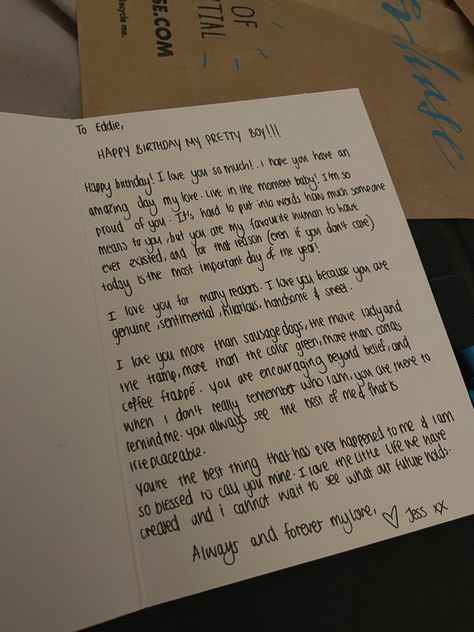 recycle me.
SE.COM
OF
TIAL
To Eddie,
HAPPY BIRTHDAY MY PRETTY BOY!!!
Happy birthday! I love you so much! I hope you have an
amazing day my love. Live in the moment baby! I'm so
proud of you. It's hard to put into words how much someone
means to you, but you are my favourite human to have
ever existed, and for that reason (even if you don't care)
today is the most important day of the year!
I love you for many reasons. I love you because you are
genuine, sentimental, hilarious, handsome & sweet.
I love you more than sausage dogs, the movie lady and
the tramp, more than the color green, more than costas
coffee frappé. you are encouraging beyond belief, and
when I don't really remember who I am, you are there to
remind me. you always see the best of me & that is
irreplaceable.
You're the best thing that has ever happened to me & I am
so blessed to call you mine. I love the little life we have
created and i cannot wait to see what our future holds.
Always and forever my love, ♡ Jess xx